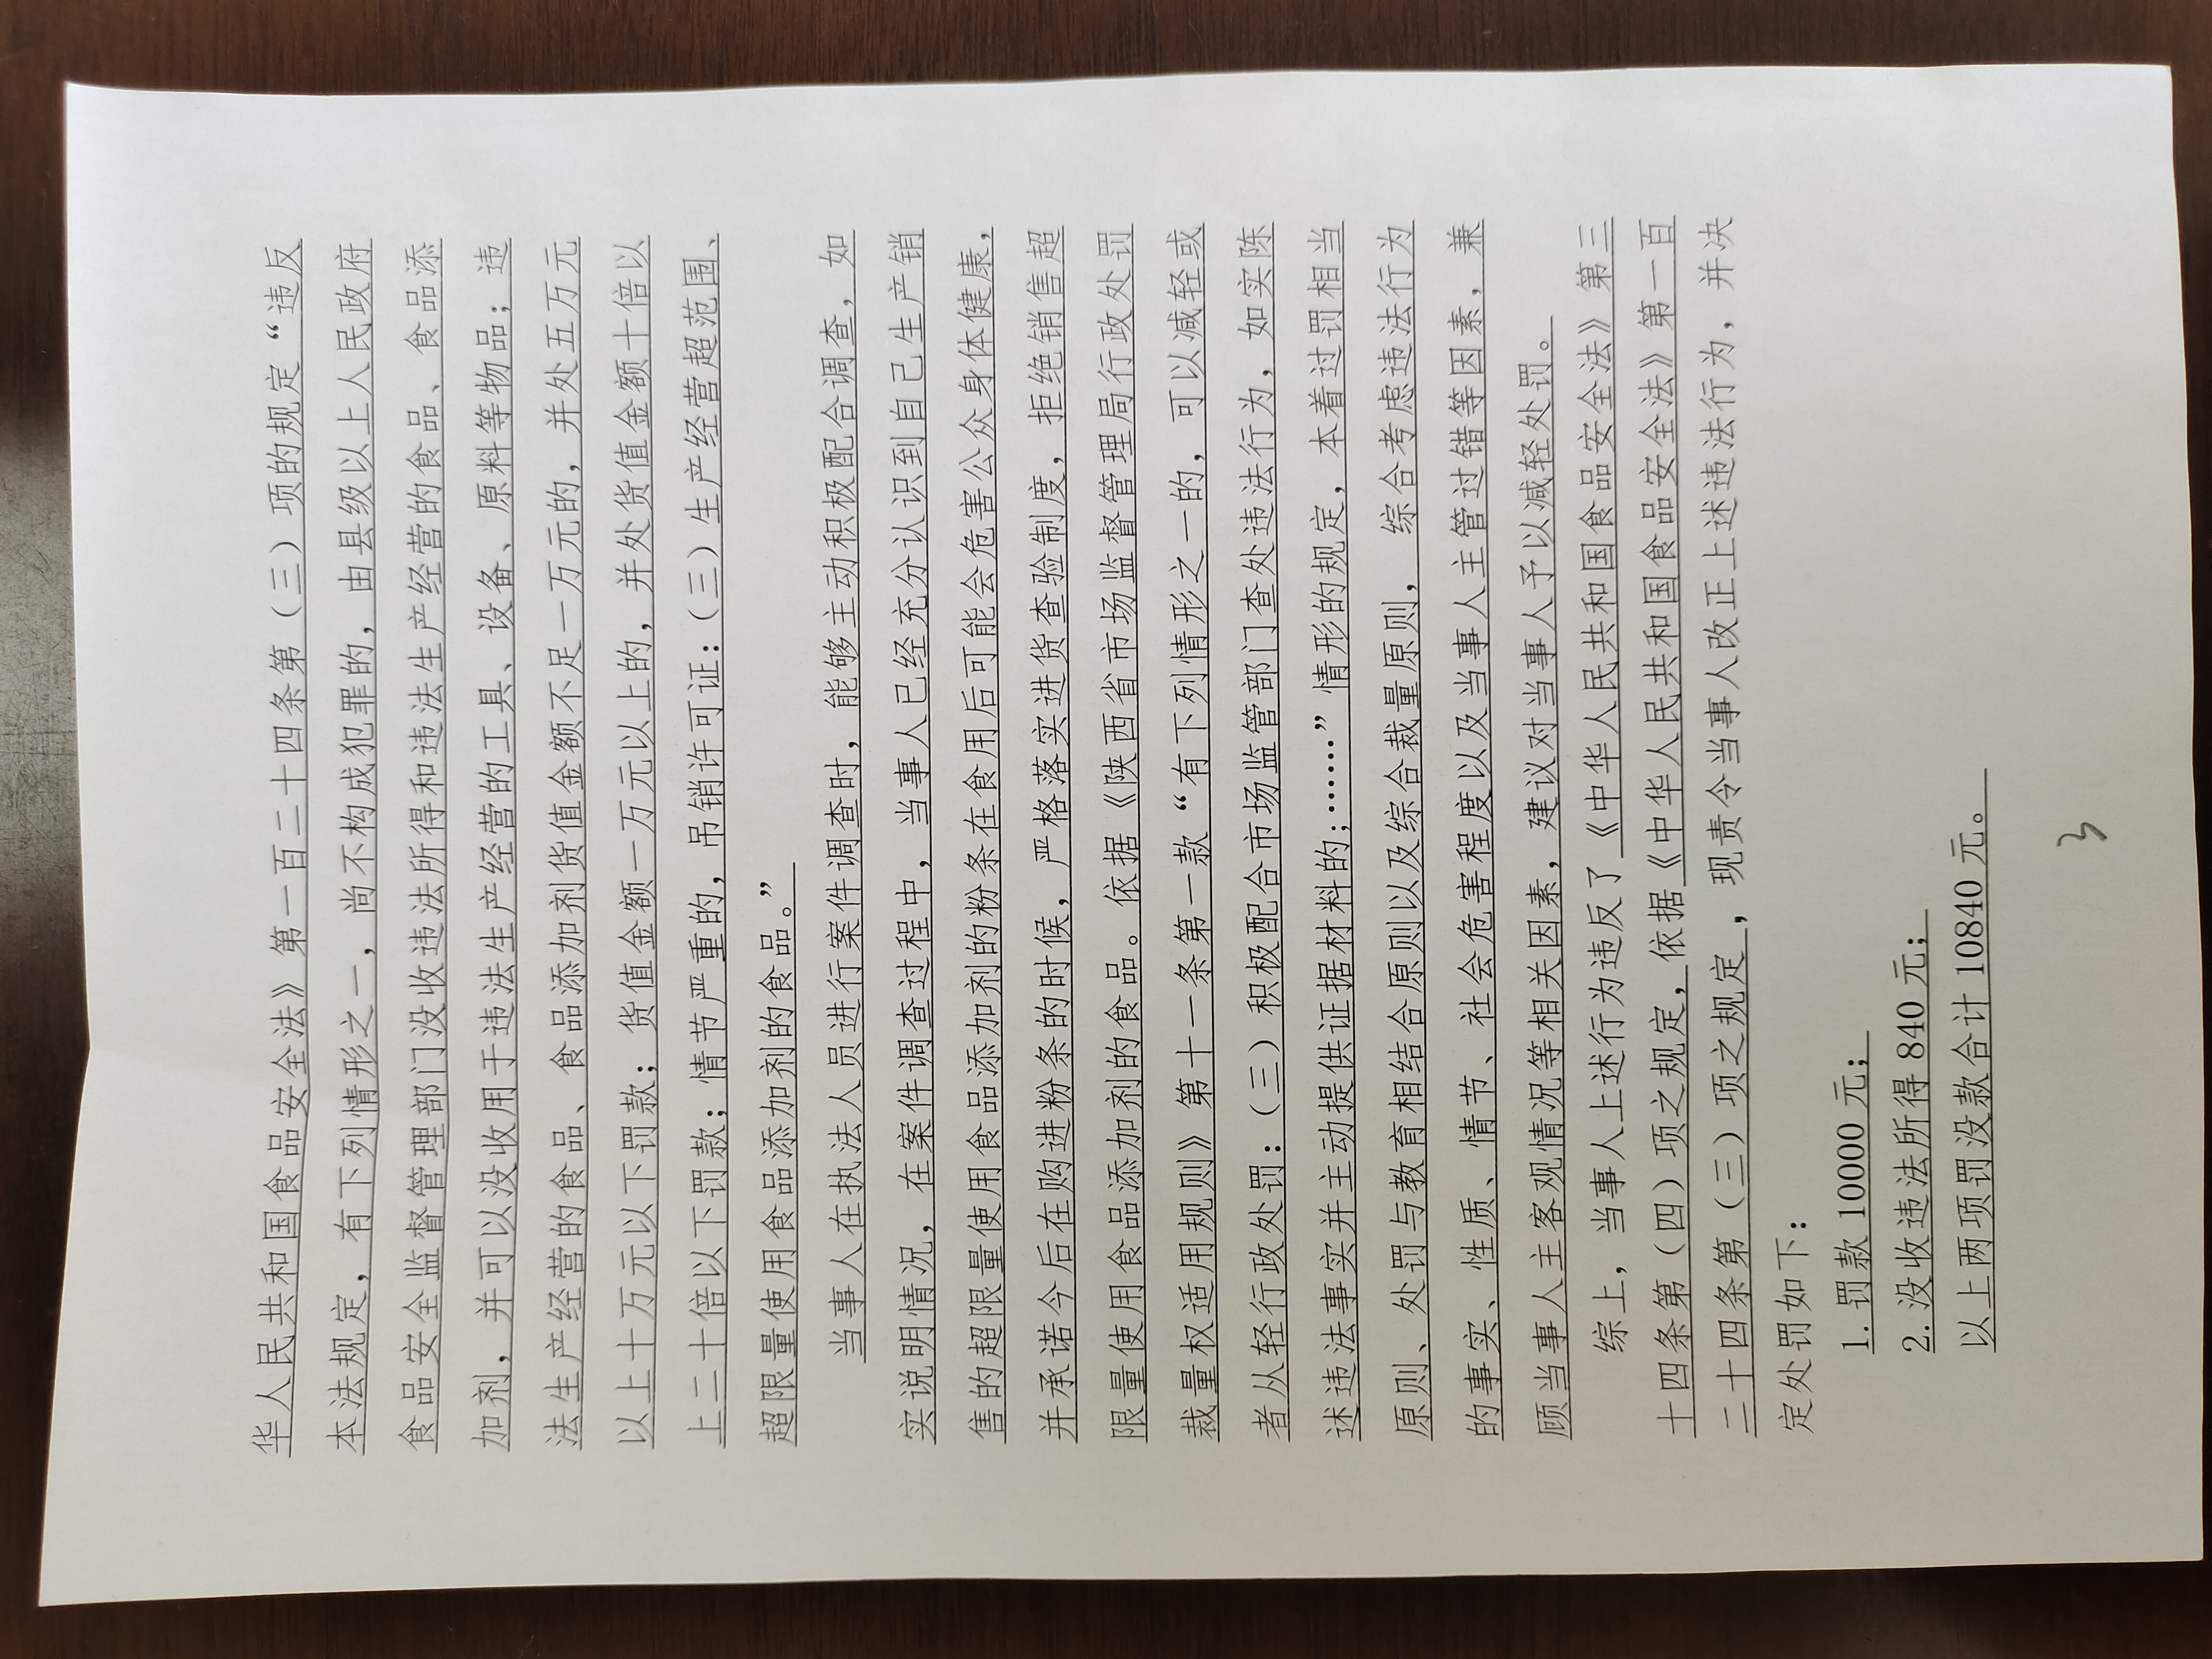 华人民共和国食品安全法》第一百二十四条第（三）项的规定“违反
本法规定，有下列情形之一，尚不构成犯罪的，由县级以上人民政府
食品安全监督管理部门没收违法所得和违法生产经营的食品、食品添
加剂，并可以没收用于违法生产经营的工具、设备、原料等物品；违
法生产经营的食品、食品添加剂货值金额不足一万元的，并处五万元
以上十万元以下罚款；货值金额一万元以上的，并处货值金额十倍以
上二十倍以下罚款；情节严重的，吊销许可证：（三）生产经营超范围、
超限量使用食品添加剂的食品。”
当事人在执法人员进行案件调查时，能够主动积极配合调查，如
实说明情况，在案件调查过程中，当事人已经充分认识到自己生产销
售的超限量使用食品添加剂的粉条在食用后可能会危害公众身体健康，
并承诺今后在购进粉条的时候，严格落实进货查验制度，拒绝销售超
限量使用食品添加剂的食品。依据《陕西省市场监督管理局行政处罚
裁量权适用规则》第十一条第一款“有下列情形之一的，可以减轻或
者从轻行政处罚：（三）积极配合市场监管部门查处违法行为，如实陈
述违法事实并主动提供证据材料的；……”情形的规定，本着过罚相当
原则、处罚与教育相结合原则以及综合裁量原则，综合考虑违法行为
的事实、性质、情节、社会危害程度以及当事人主管过错等因素，兼
顾当事人主客观情况等相关因素，建议对当事人予以减轻处罚。
综上，当事人上述行为违反了《中华人民共和国食品安全法》第三
十四条第（四）项之规定，依据《中华人民共和国食品安全法》第一百
二十四条第（三）项之规定，现责令当事人改正上述违法行为，并决
定处罚如下：
1.罚款 10000 元；
2.没收违法所得 840 元；
以上两项罚没款合计 10840 元。
3